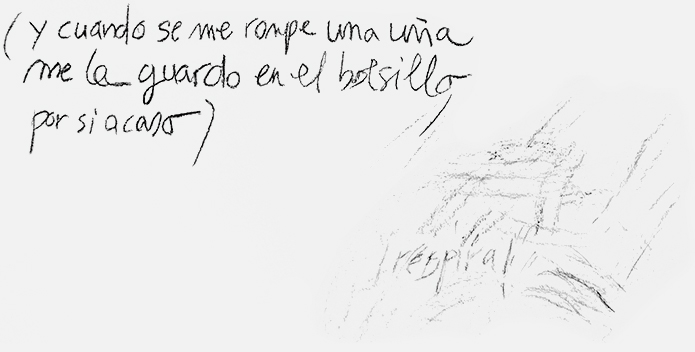 (y cuando se me rompe una uña
me la guardo en el bolsillo
por si acaso)
¡respira!